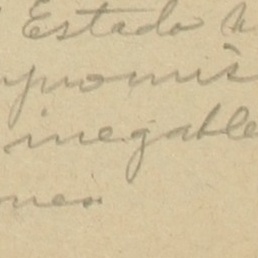 Estado
promis
inegable
nes